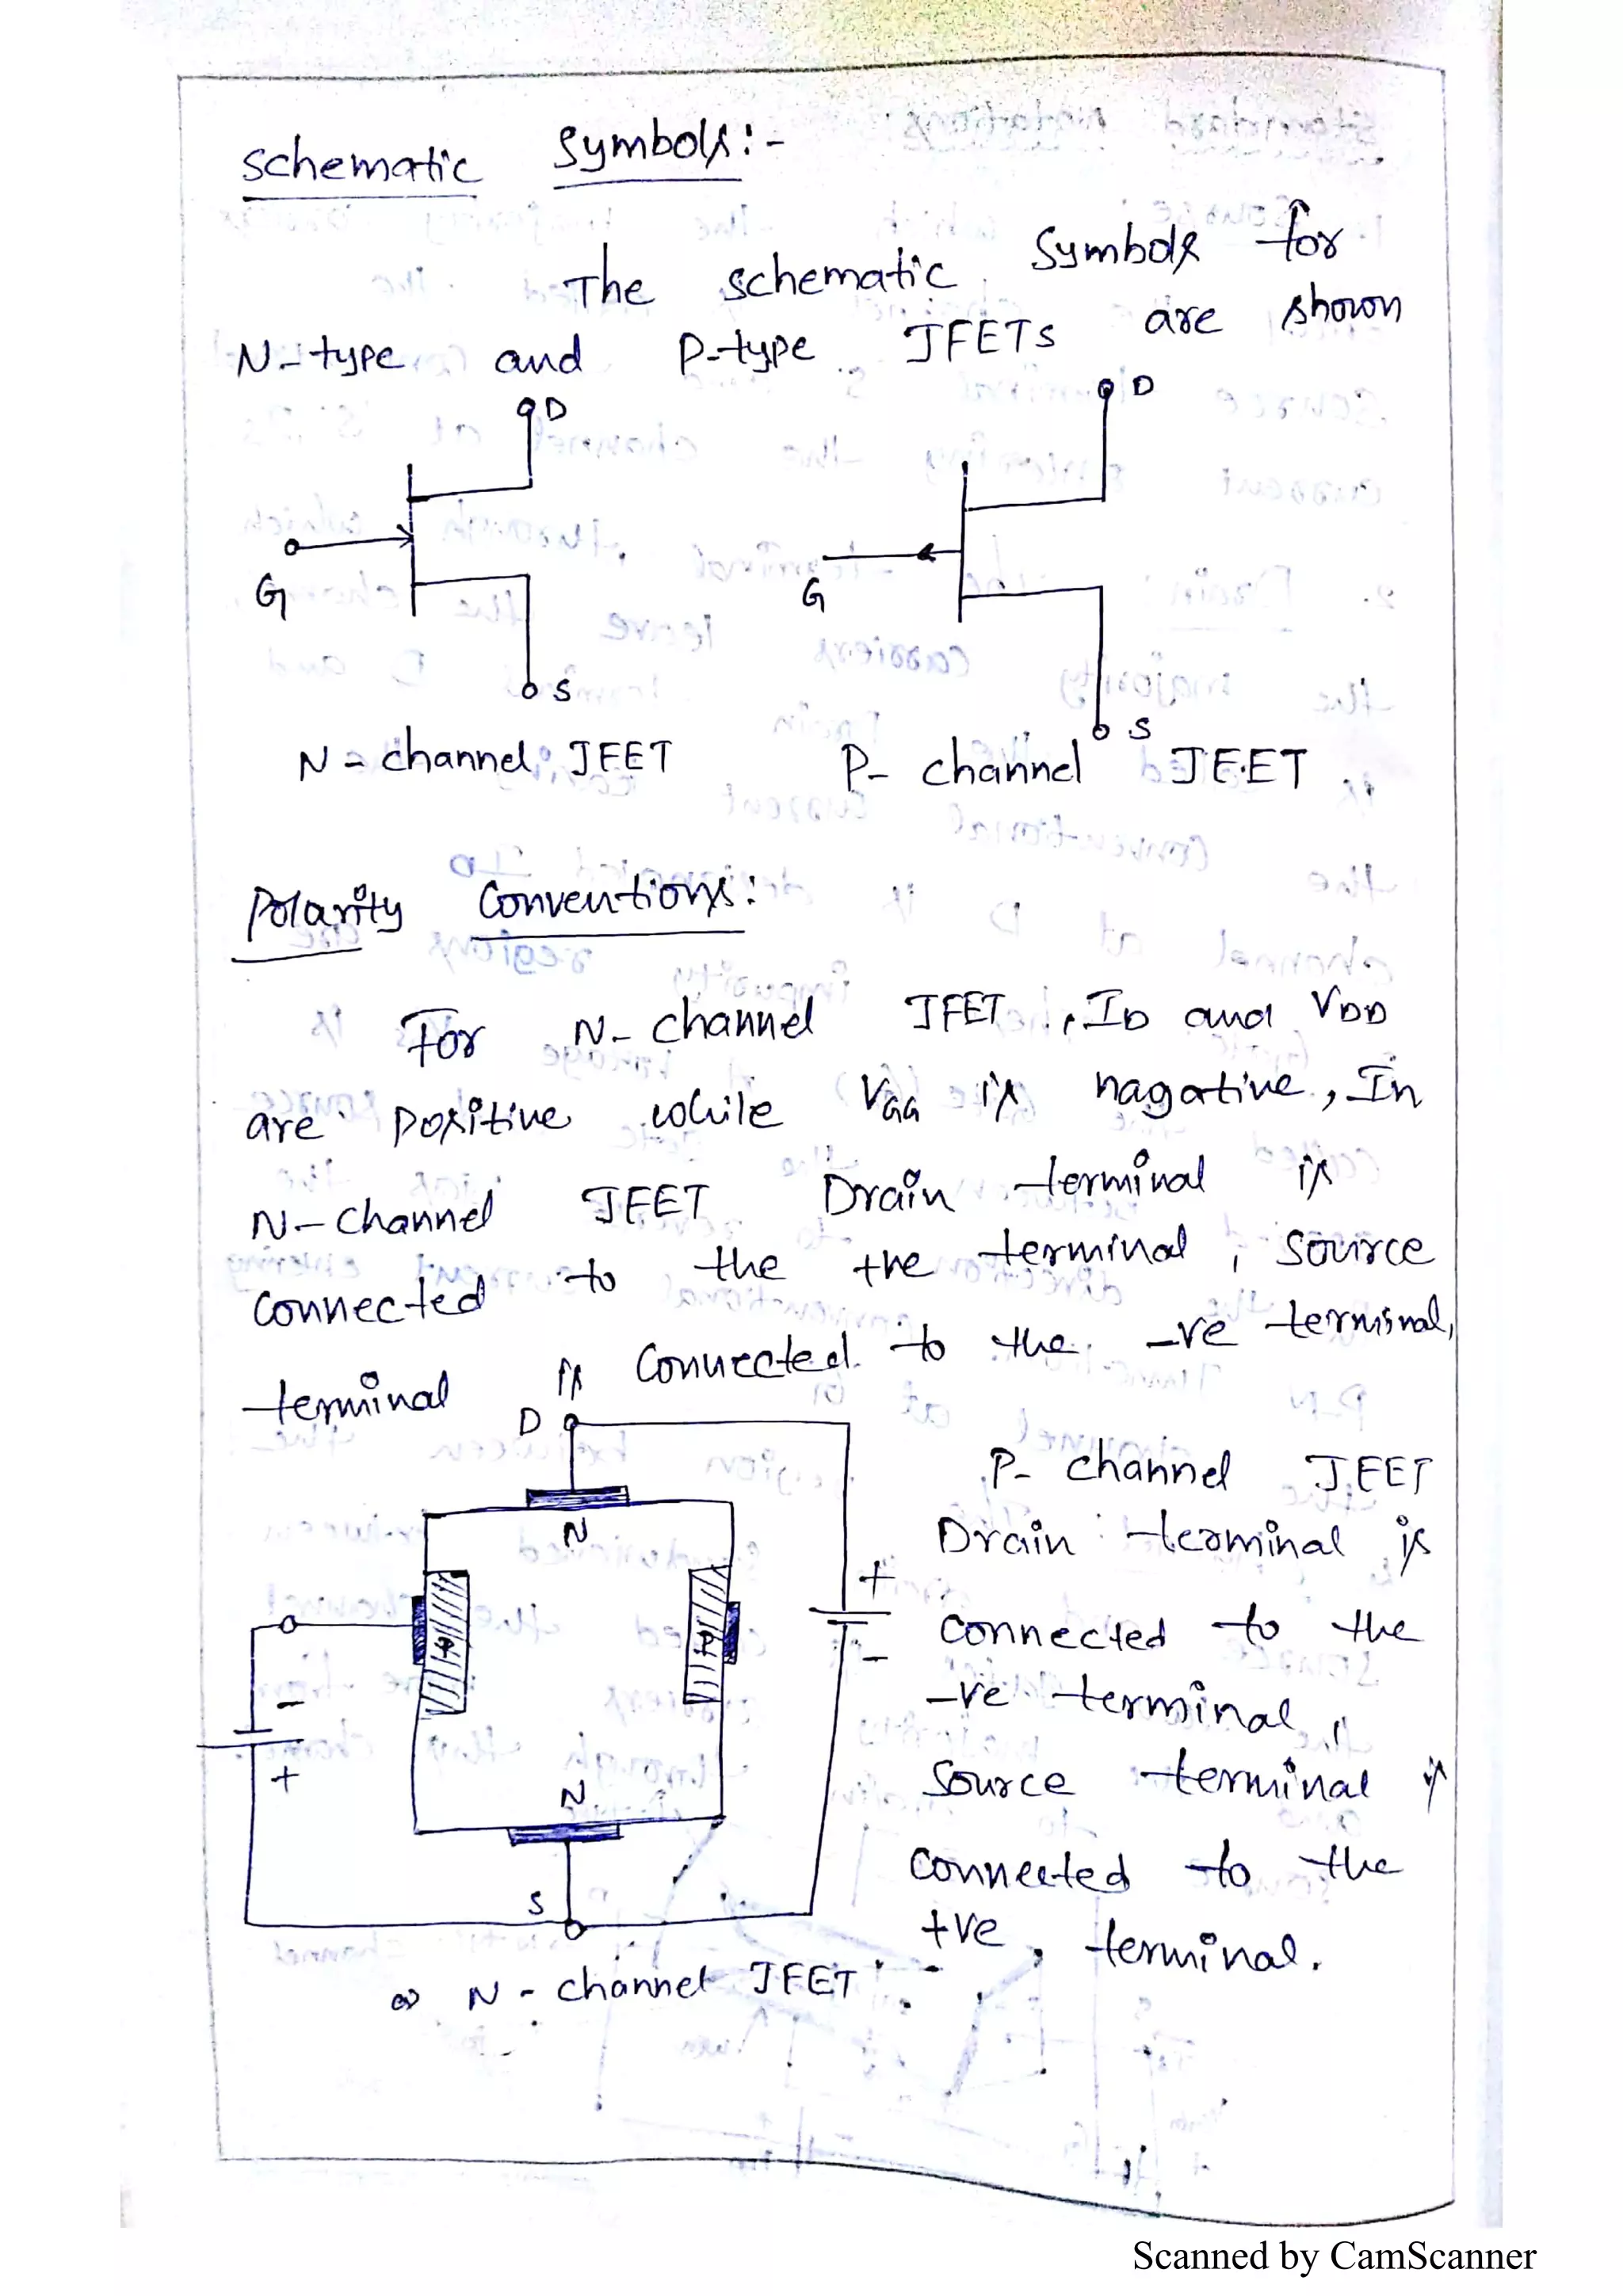 Schematic Symbols:-
The schematic Symbols for
N-type and P-type JFETs are shown
D D
G G
S S
N-channel JFET P- channel JFET
Polarity Conventions:
For N-channel JFET, ID and VDD
are positive while VGG is nagative, In
N-channel JFET Drain terminal is
connected to the +ve terminal, source
terminal is connected to the -ve terminal,
D
P- channel JFET
N
Drain terminal is
+
P P
connected to the
-
-
-ve terminal,
+
Source terminal is
N
connected to the
S
+ve terminal.
N - channel JFET
Scanned by CamScanner